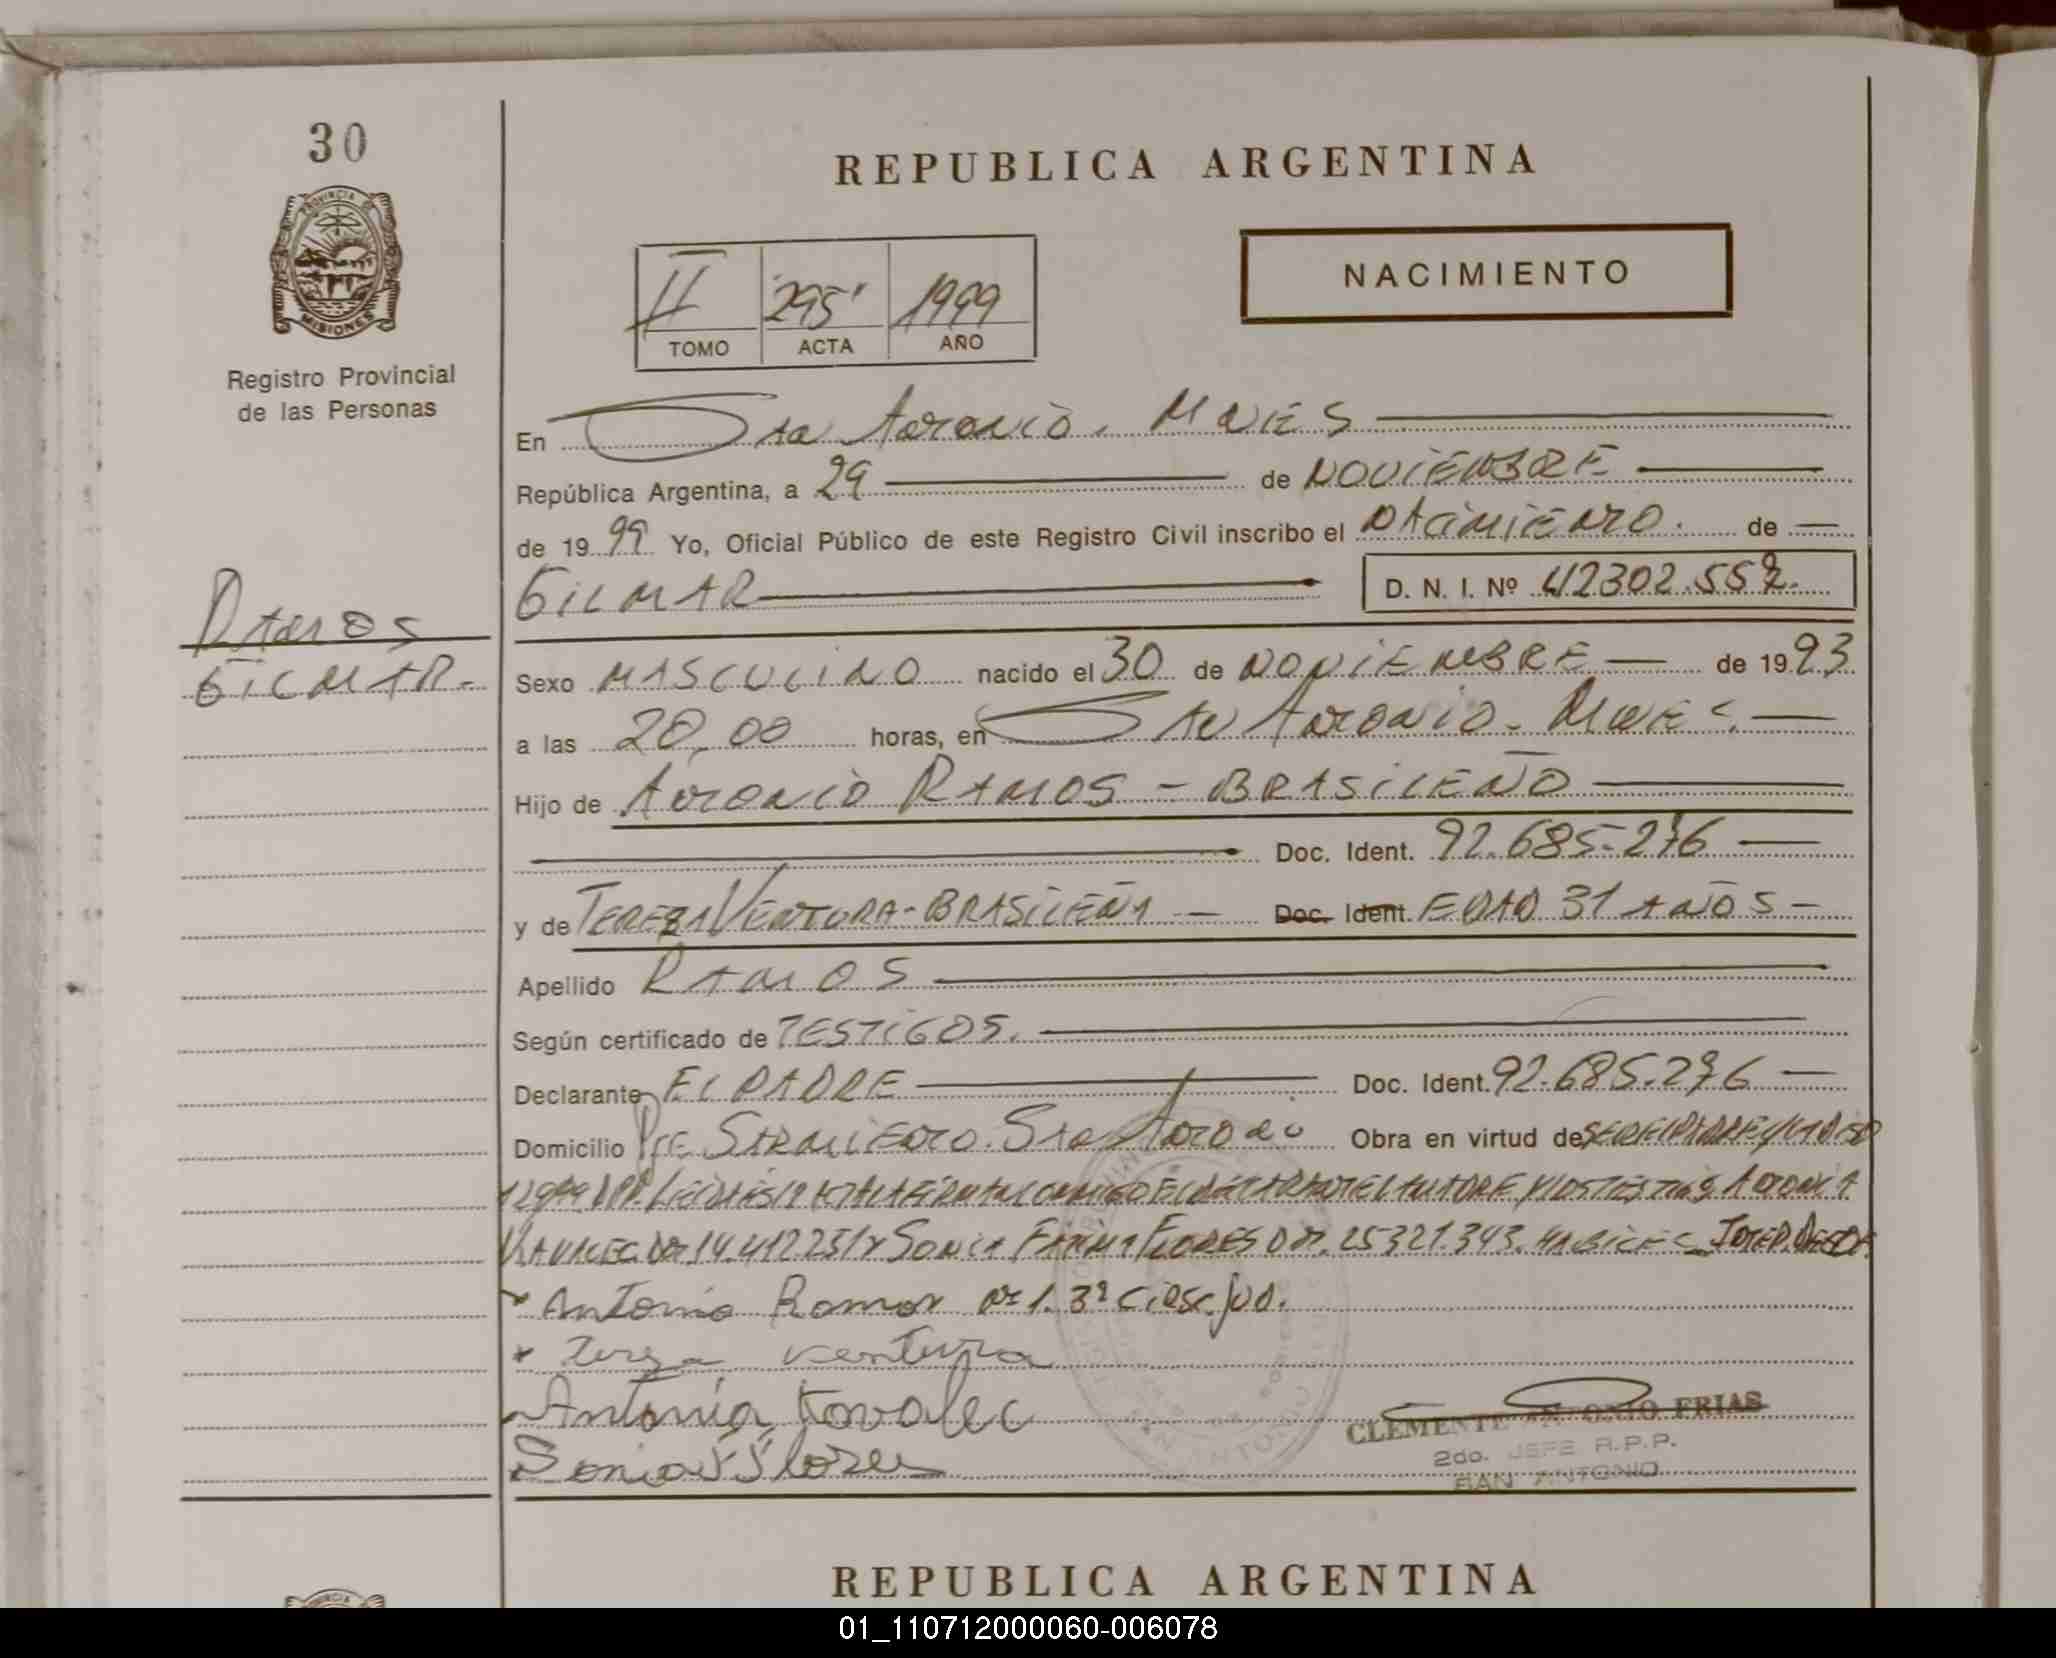 30
REPUBLICA ARGENTINA
PROVINCIA DE
MISIONES
Registro Provincial
de las Personas
NACIMIENTO
II 295 1999
TOMO ACTA AÑO
En San Antonio. MNES
República Argentina, a 29 de NOVIEMBRE
de 1999 Yo, Oficial Público de este Registro Civil inscribo el NACIMIENTO. de
GILMAR D. N. I. Nº 42302.552.
RAMOS
GILMAR.
Sexo MASCULINO nacido el 30 de NOVIEMBRE de 1993
a las 20,00 horas, en SAN ANTONIO. MNES.
Hijo de ANTONIO RAMOS - BRASILEÑO
Doc. Ident. 92.685.276
y de TEREZA VENTURA - BRASILEÑA Doc. Ident. EDAD 31 AÑOS
Apellido RAMOS
Según certificado de TESTIGOS.
Declarante EL PADRE Doc. Ident. 92.685.276
Domicilio Pte SARMIENTO. San Antonio Obra en virtud de SER EL PADRE
EL DECLARANTE LA MADRE Y LOS TESTIGOS ANTONIA
14.412231 y SONIA FLORES 25321.343. HABILES
* Antonio Ramos Nº 1. 3ª Circ. Jud.
* Tereza Ventura
Antonia Kovalec
Sonia F Flores
CLEMENTE ANTONIO FRIAS
2do. JEFE R.P.P.
SAN ANTONIO
REPUBLICA ARGENTINA
01_110712000060-006078